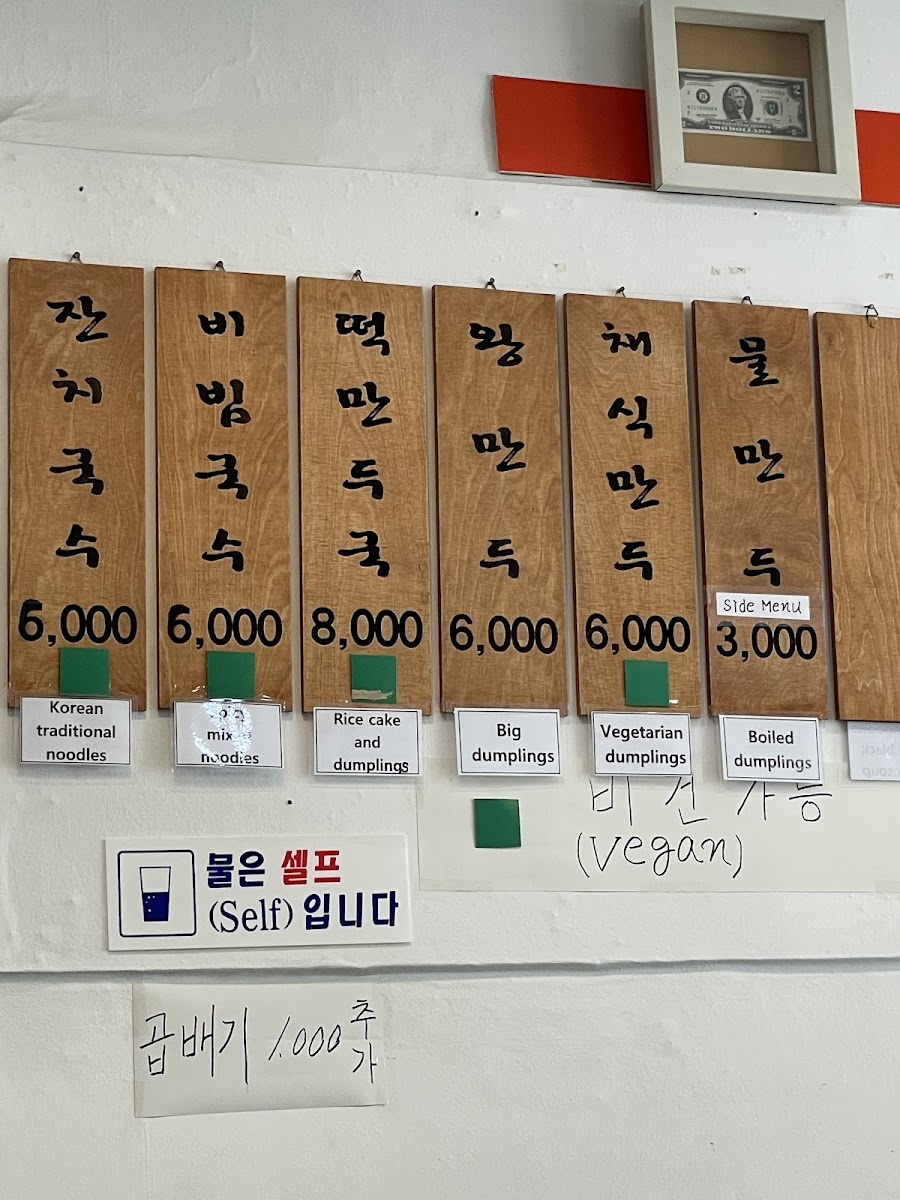 잔치국수
6,000
Korean
traditional
noodles
비빔국수
6,000
noodles
떡만두국
8,000
Rice cake
and
dumplings
왕만두
6,000
Big
dumplings
채식만두
6,000
Vegetarian
dumplings
물만두
Side Menu
3,000
Boiled
dumplings
비건 가능
(Vegan)
물은 셀프
(Self) 입니다
곱배기 1.000 추가
2
TWO DOLLARS